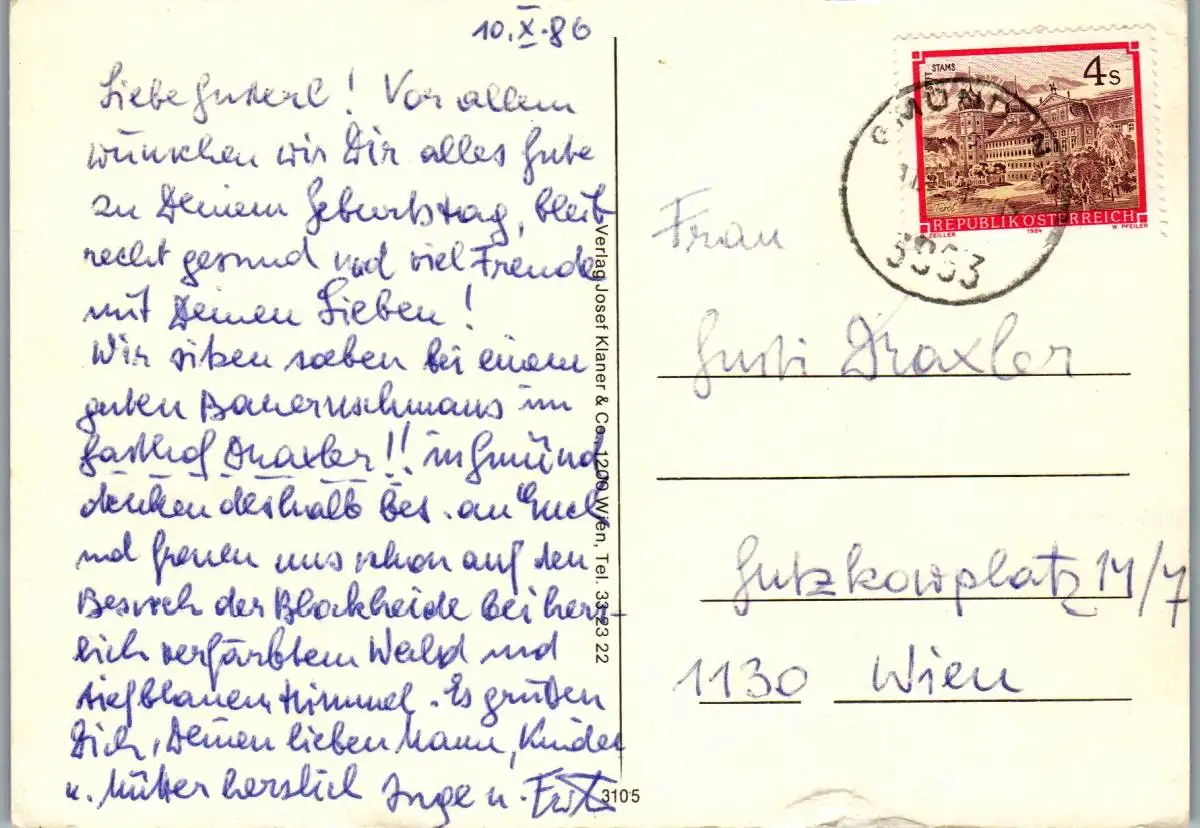 10.X.86
Liebe Gusterl! Vor allem
wünschen wir Dir alles Gute
zu Deinem Geburtstag, bleib
recht gesund und viel Freude
mit Deinen Lieben!
Wir sitzen soeben bei einem
guten Bauernschmaus im
Gasthof Draxler!! in Gmünd
denken deshalb bes. an Euch
und freuen uns schon auf den
Besuch der Blockheide bei herr-
lich verfärbtem Wald und
tiefblauem Himmel. Es grüßen
Dich, Deinen lieben Mann, Kinder
u. Mutter herzlich Inge u. Fritz
Verlag Josef Klaner & Co., 1200 Wien, Tel. 33 23 22
3105
STIFT STAMS
4 S
REPUBLIK ÖSTERREICH
ZEILLER 1984 W. PFEILER
GMÜND
Frau
Gusti Draxler
Gutzkowplatz 14/7
1130 Wien